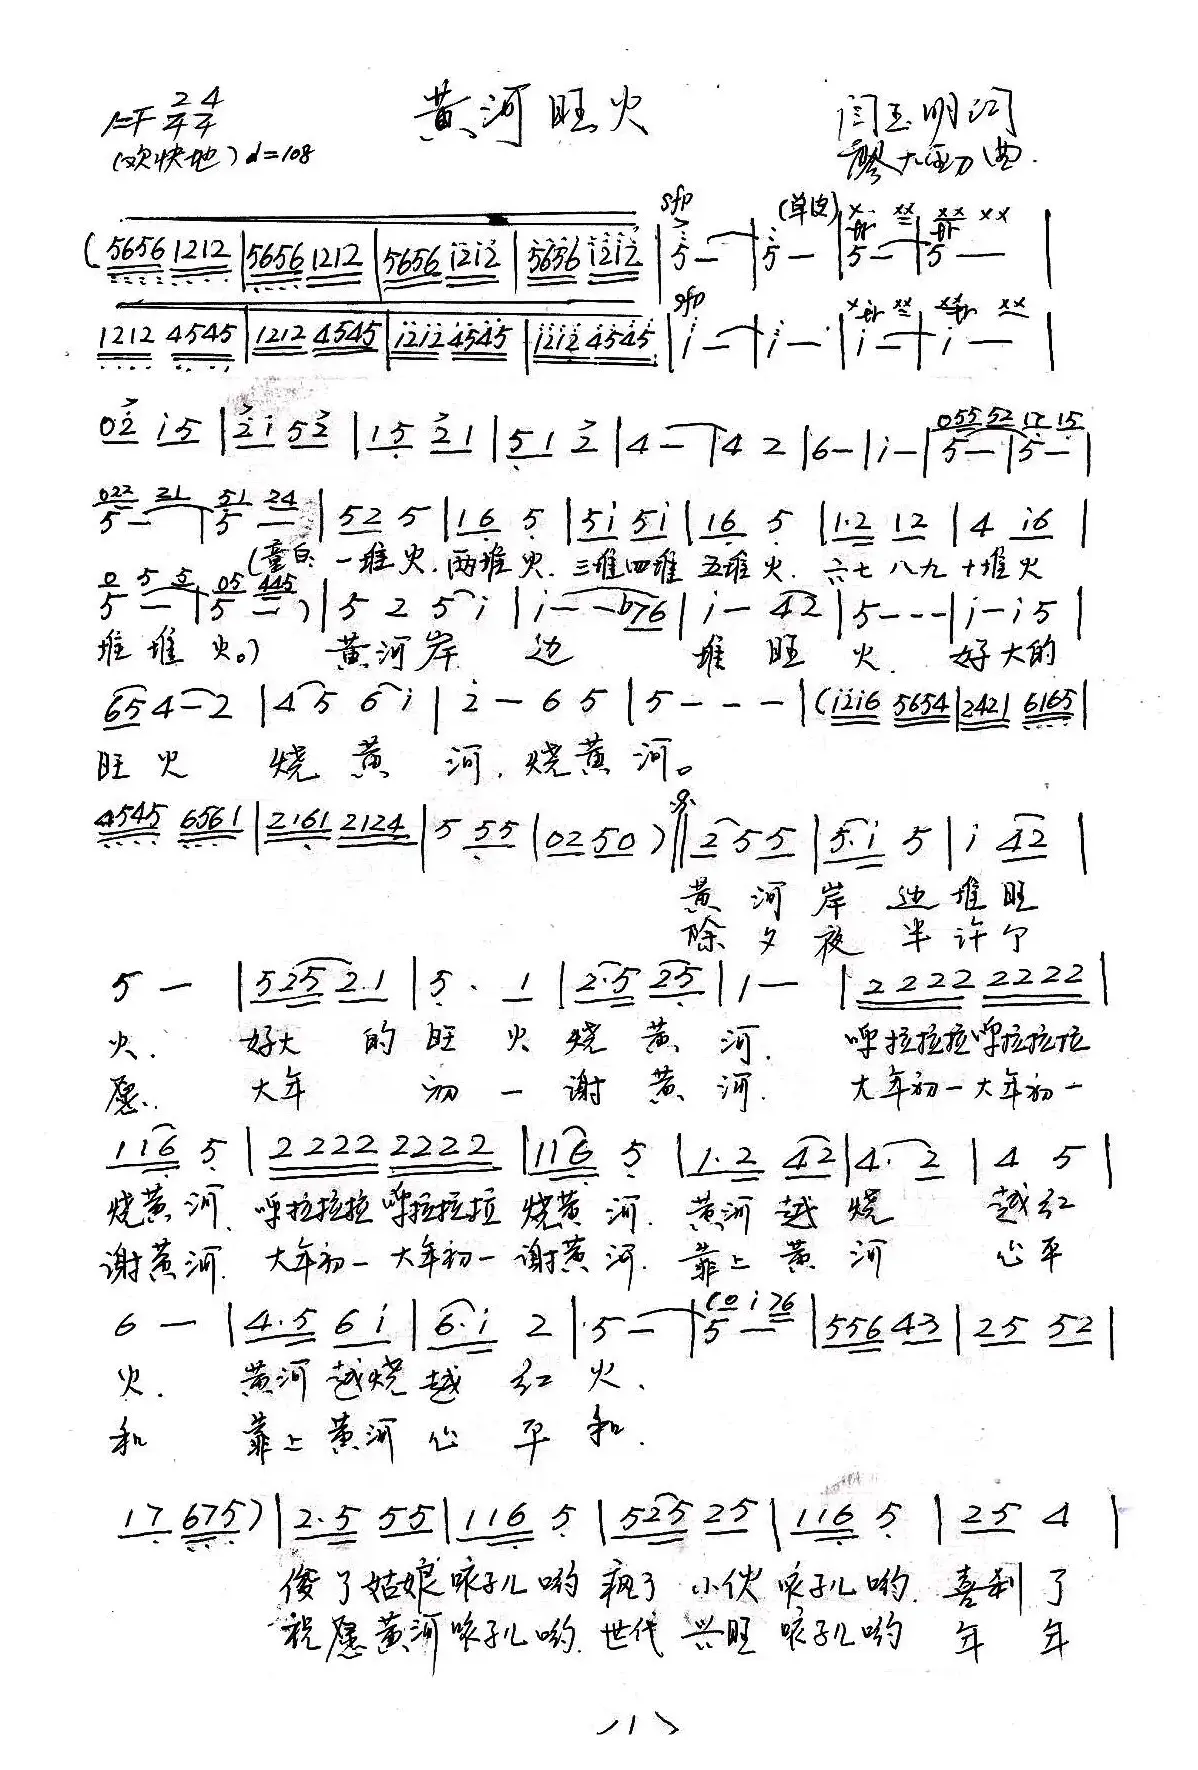 黄河旺火
1=F 2/4 4/4
(欢快地) ♩=108
闫玉明词
曲.
sfp (单皮)
(5656 1212 | 5656 1212 | 5656 i2i2 | 5656 i2i2 | 5 — | 5 — | 5 — | 5 — |
sfp
1212 4545 | 1212 4545 | i2i2 4545 | i2i2 4545 | i — | i — | i — | i — |
02 i5 | 2i 52 | 15 21 | 51 2 | 4 — | 4 2 | 6 — | i — | 5 — | 5 — |
055 52 15 15
022 21 51 24
5 — | 5 — | 52 5 | 16 5 | 5i 5i | 16 5 | 1·2 12 | 4 i6 |
(童白: 一堆火. 两堆火. 三堆四堆 五堆火. 六七八九十堆火
0 5 5 05 445
5 — | 5 — ) | 5 2 5 i | i — — b76 | i — 42 | 5 - - - | i — i 5 |
堆堆火。) 黄河岸 边 堆旺火. 好大的
65 4 — 2 | 4 5 6 i | 2 — 6 5 | 5 - - - | (i2i6 5654 | 2421 6165 |
旺火 烧黄河, 烧黄河。
4545 6561 | 2161 2124 | 5 55 | 02 50 ) ‖ 2 5 5 | 5·i 5 | i 42 |
黄河岸边堆旺
除夕夜半许个
5 — | 525 2·1 | 5· 1 | 2·5 25 | 1 — | 2222 2222 |
火. 好大的旺火烧黄河. 呼拉拉拉呼拉拉拉
愿. 大年初一谢黄河. 大年初一大年初一
116 5 | 2222 2222 | 116 5 | 1·2 42 | 4· 2 | 4 5 |
烧黄河. 呼拉拉拉呼拉拉拉 烧黄河. 黄河越烧 越红
谢黄河. 大年初一大年初一谢黄河. 靠上黄河 心平
(0 i 76
6 — | 4·5 6i | 6·i 2 | 5 — | 5 — | 556 43 | 25 52 |
火. 黄河越烧越红火.
和 靠上黄河心平和.
17 675) | 2·5 55 | 116 5 | 525 25 | 116 5 | 25 4 |
俊了姑娘咳孙儿哟 疯了小伙咳孙儿哟. 喜刹了
祝愿黄河咳孙儿哟. 世代兴旺咳孙儿哟 年年
〈1〉